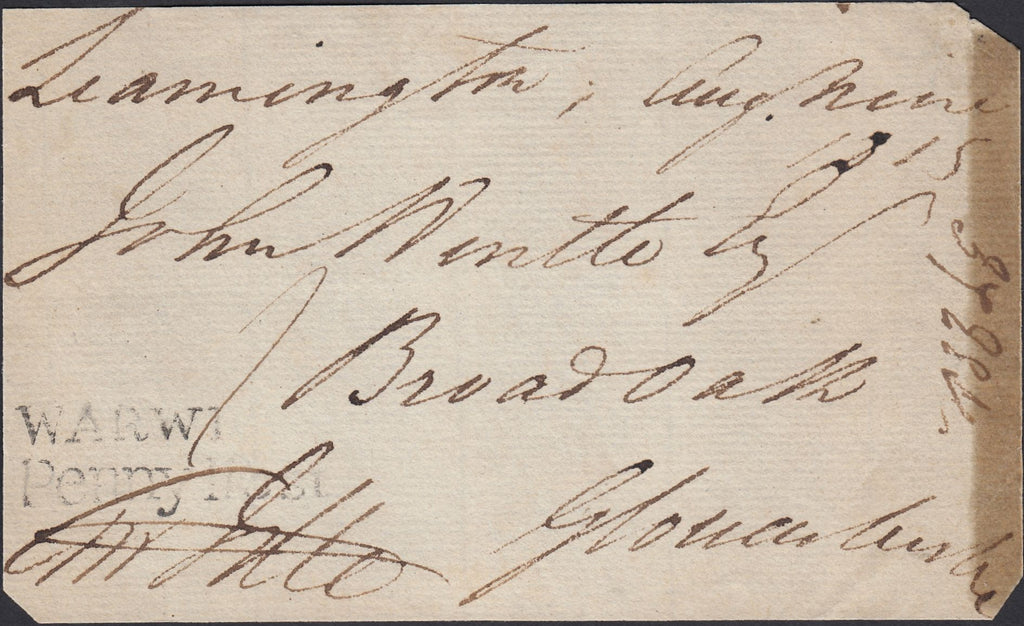 Leamington, Aug. nine
1815
John Wintle Esq
Broad Oak
WARWI
Penny Post
Gloucestershire